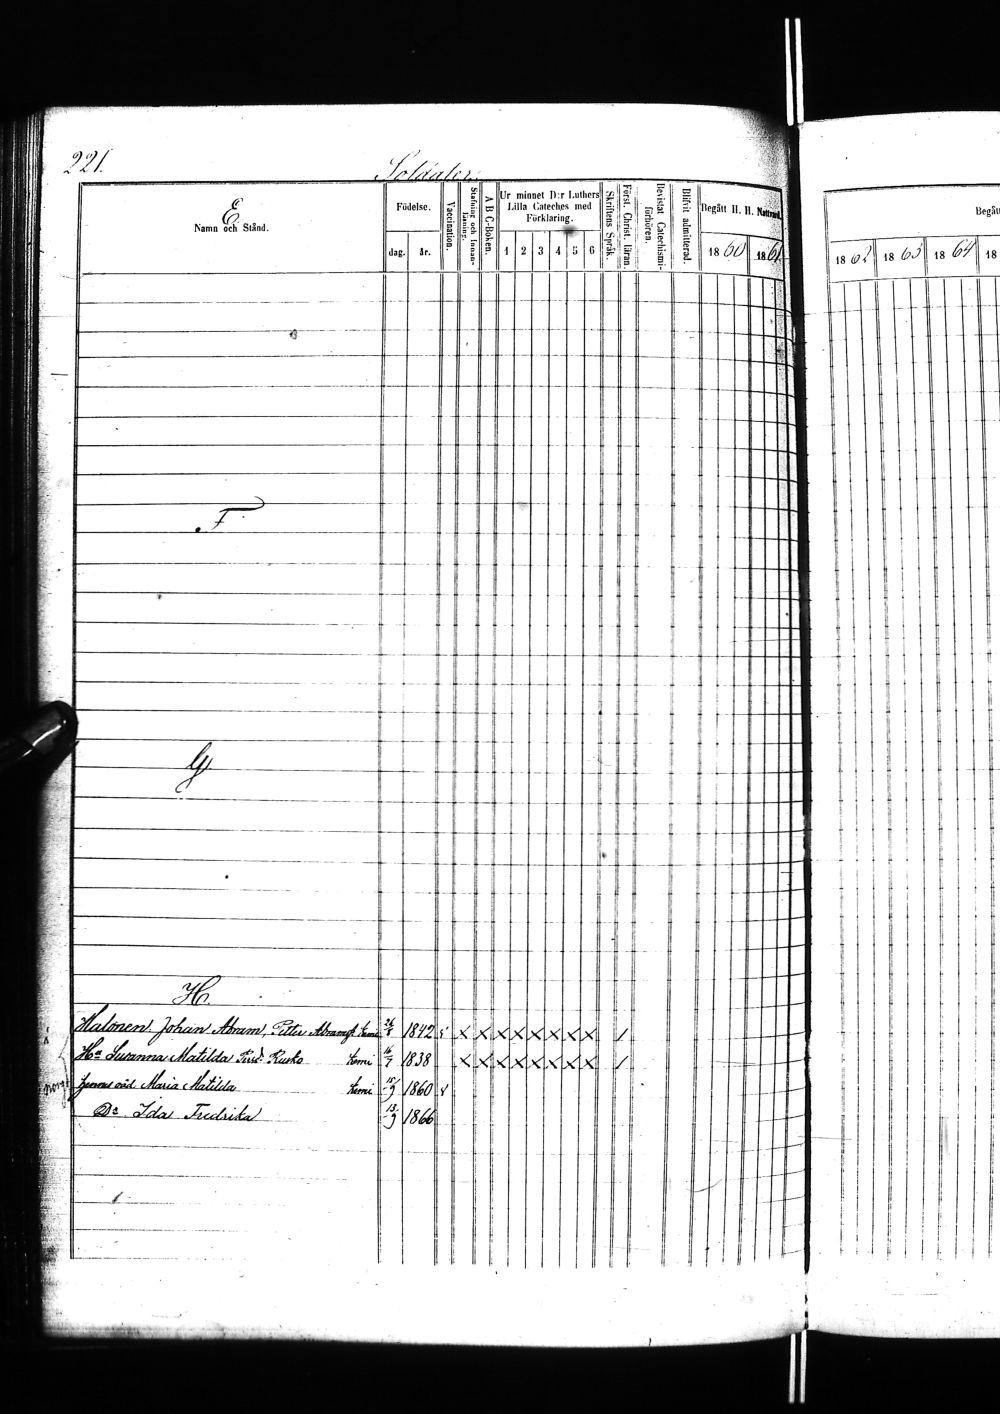 221.
Soldater.
E
Namn och Stånd.
Födelse.
dag. år.
Vaccination.
Stafning och Innanläsning.
A B C-Boken.
Ur minnet D:r Luthers Lilla Cateches med Förklaring.
1 2 3 4 5 6
Skriftens Språk.
Först. Christ. läran
Bevistat Catechismiförhören.
Blifvit admitterad.
Begått H. H. Nattvard.
1860 1861
Begått
1862 1863 1864 18
F
G
H.
Halonen Johan Abram, Petter Kemi 26/8 1842 X X X X X X X X /
Hu Susanna Matilda Kusko Kemi 16/7 1838 X X X X X X X X /
Maria Matilda Kemi 15/9 1860
Do Ida Fredrika 13/9 1866